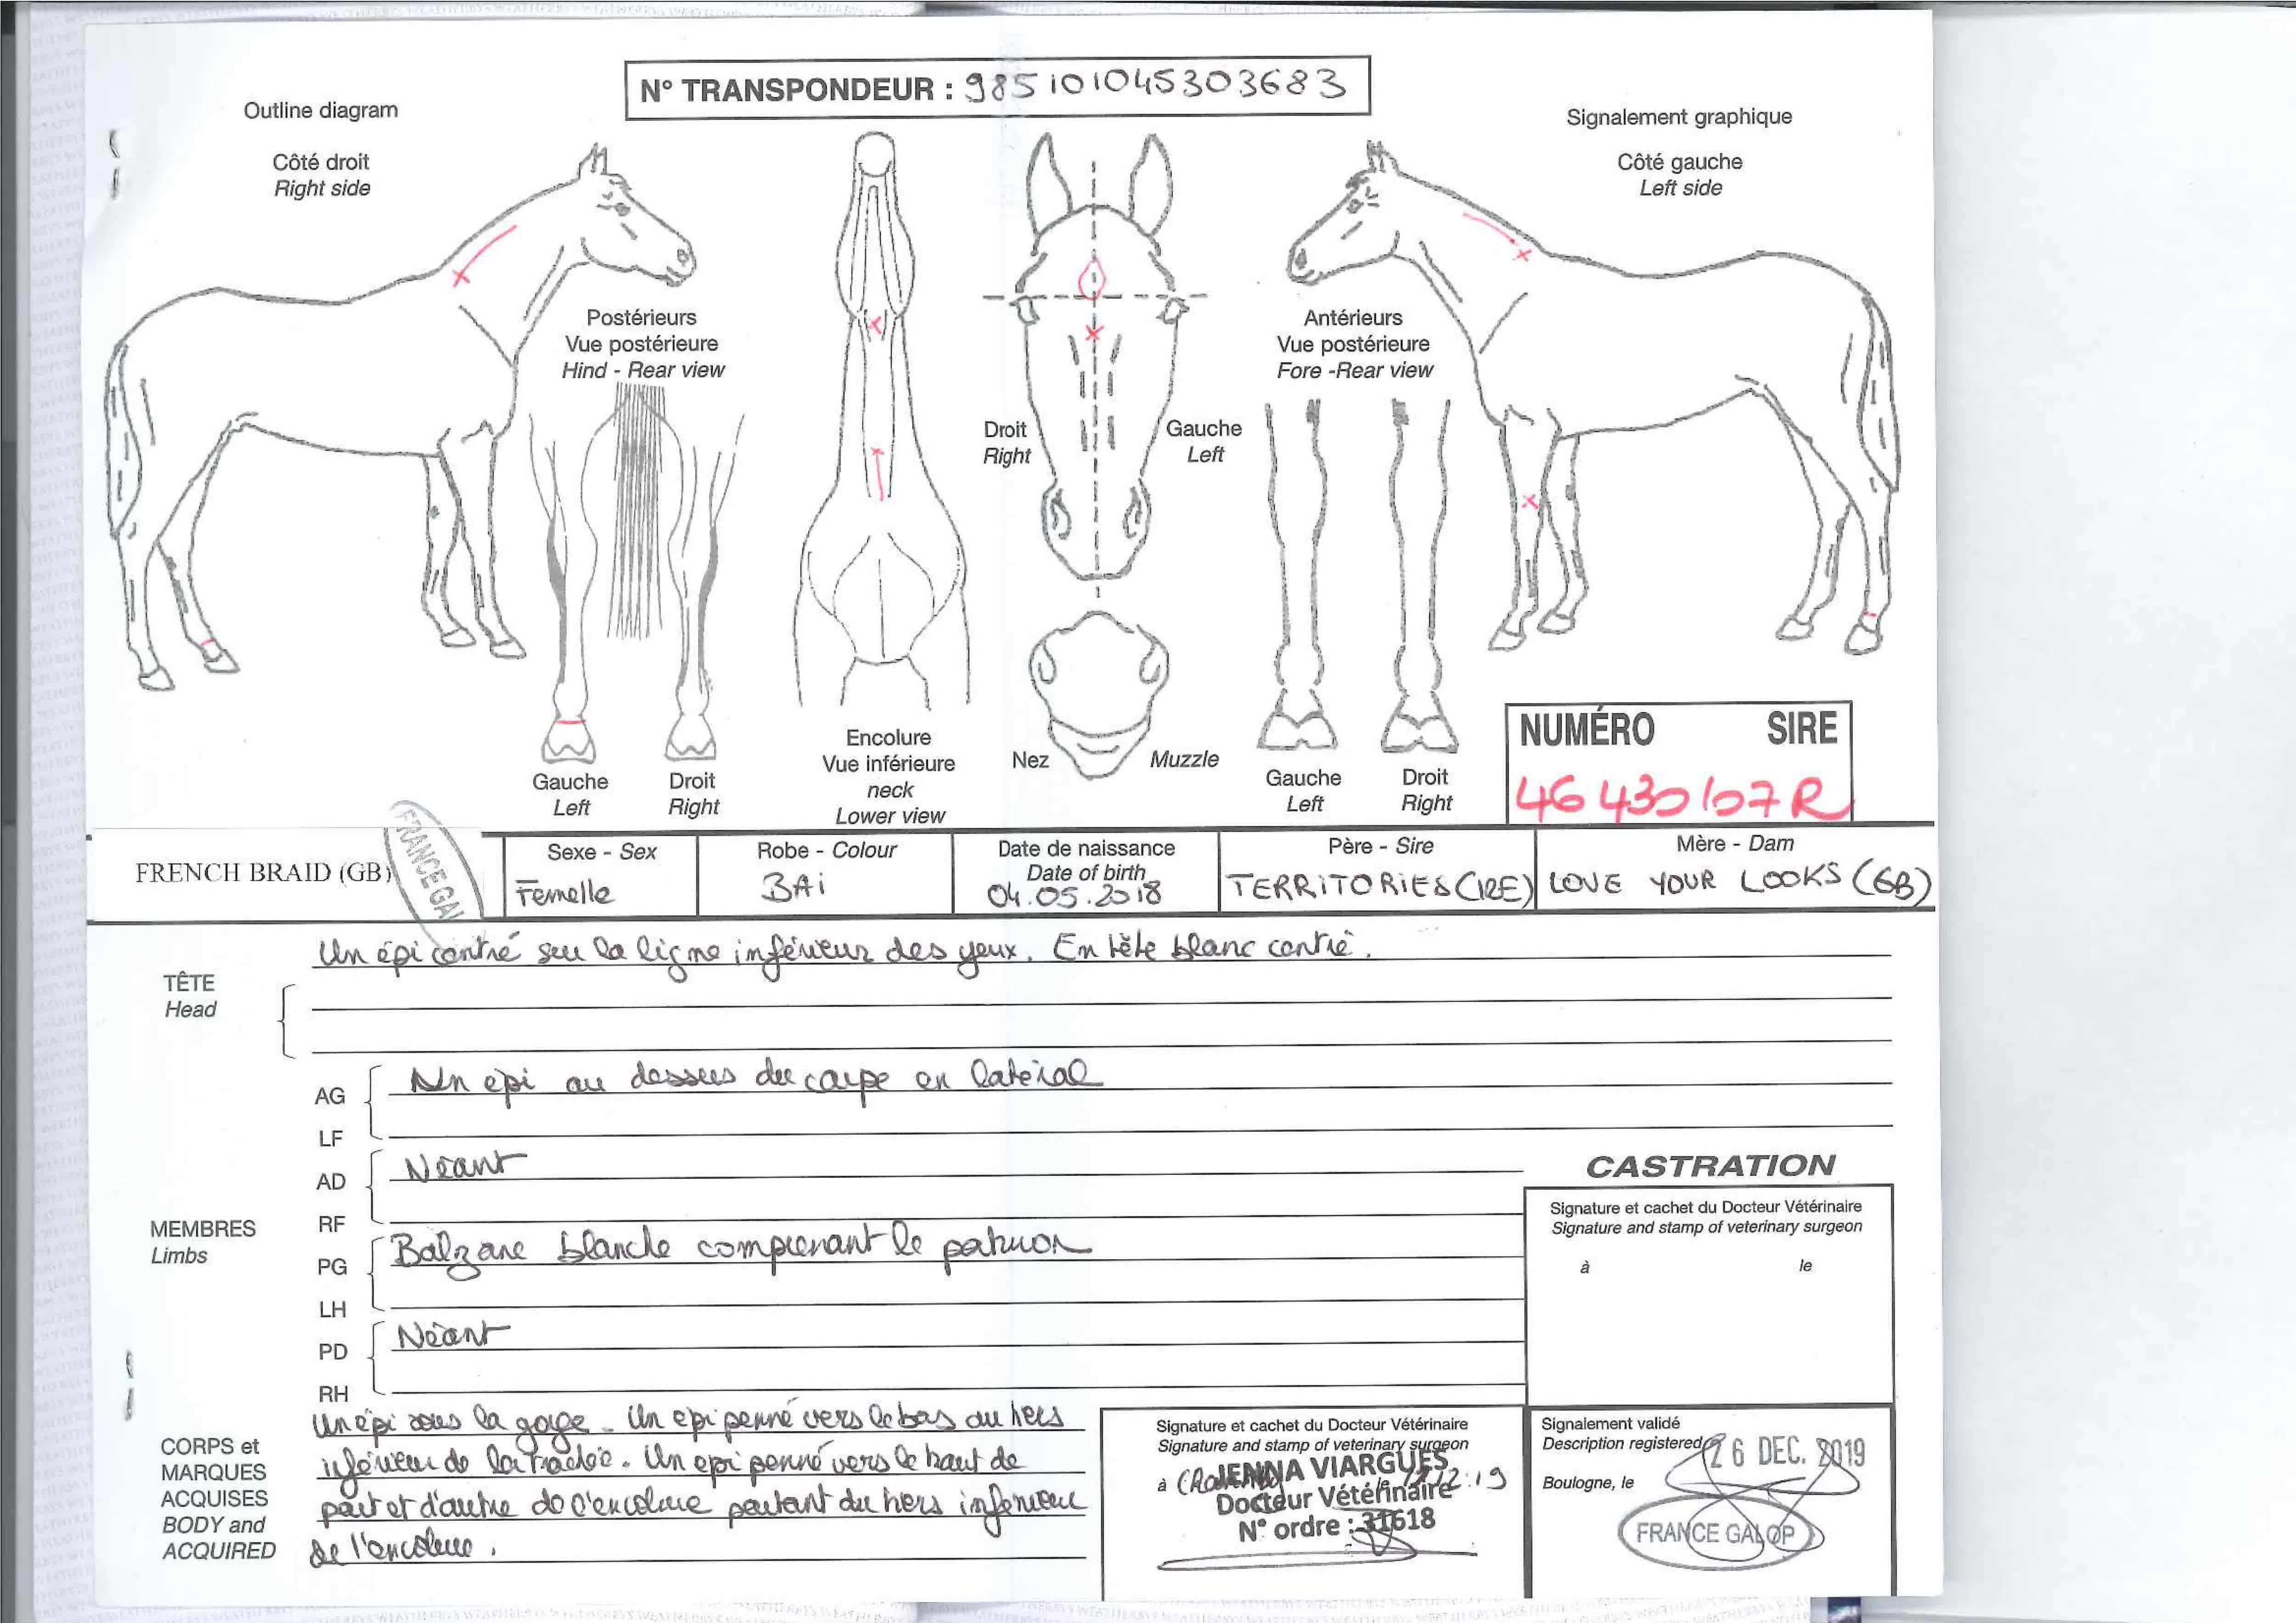 N° TRANSPONDEUR : 985101045303683
Outline diagram
Signalement graphique
Côté droit
Right side
Côté gauche
Left side
Postérieurs
Vue postérieure
Hind - Rear view
Antérieurs
Vue postérieure
Fore -Rear view
Droit
Right
Gauche
Left
Encolure
Vue inférieure
neck
Lower view
Nez
Muzzle
Gauche
Left
Droit
Right
Gauche
Left
Droit
Right
NUMÉRO SIRE
46 430 107 R
FRENCH BRAID (GB)
FRANCE GAL
Sexe - Sex
Femelle
Robe - Colour
BAi
Date de naissance
Date of birth
04.05.2018
Père - Sire
TERRITORIES (IRE)
Mère - Dam
LOVE YOUR LOOKS (GB)
TÊTE
Head
Un épi centré sur la ligne inférieur des yeux. En tête blanc centré.
MEMBRES
Limbs
AG
LF
Un épi au dessus du carpe en latéral
AD
RF
Néant
PG
LH
Balzane blanche comprenant le paturon
PD
RH
Néant
CASTRATION
Signature et cachet du Docteur Vétérinaire
Signature and stamp of veterinary surgeon
à le
CORPS et
MARQUES
ACQUISES
BODY and
ACQUIRED
Un épi sous la gorge. Un epi penné vers le bas au tiers
inférieur de la trachée. Un epi penné vers le haut de
part et d'autre de l'encolure partant du tiers inférieur
de l'encolure.
Signature et cachet du Docteur Vétérinaire
Signature and stamp of veterinary surgeon
à
JENNA VIARGUES
Docteur Vétérinaire
N° ordre : 31618
Signalement validé
Description registered
26 DEC. 2019
Boulogne, le
FRANCE GALOP